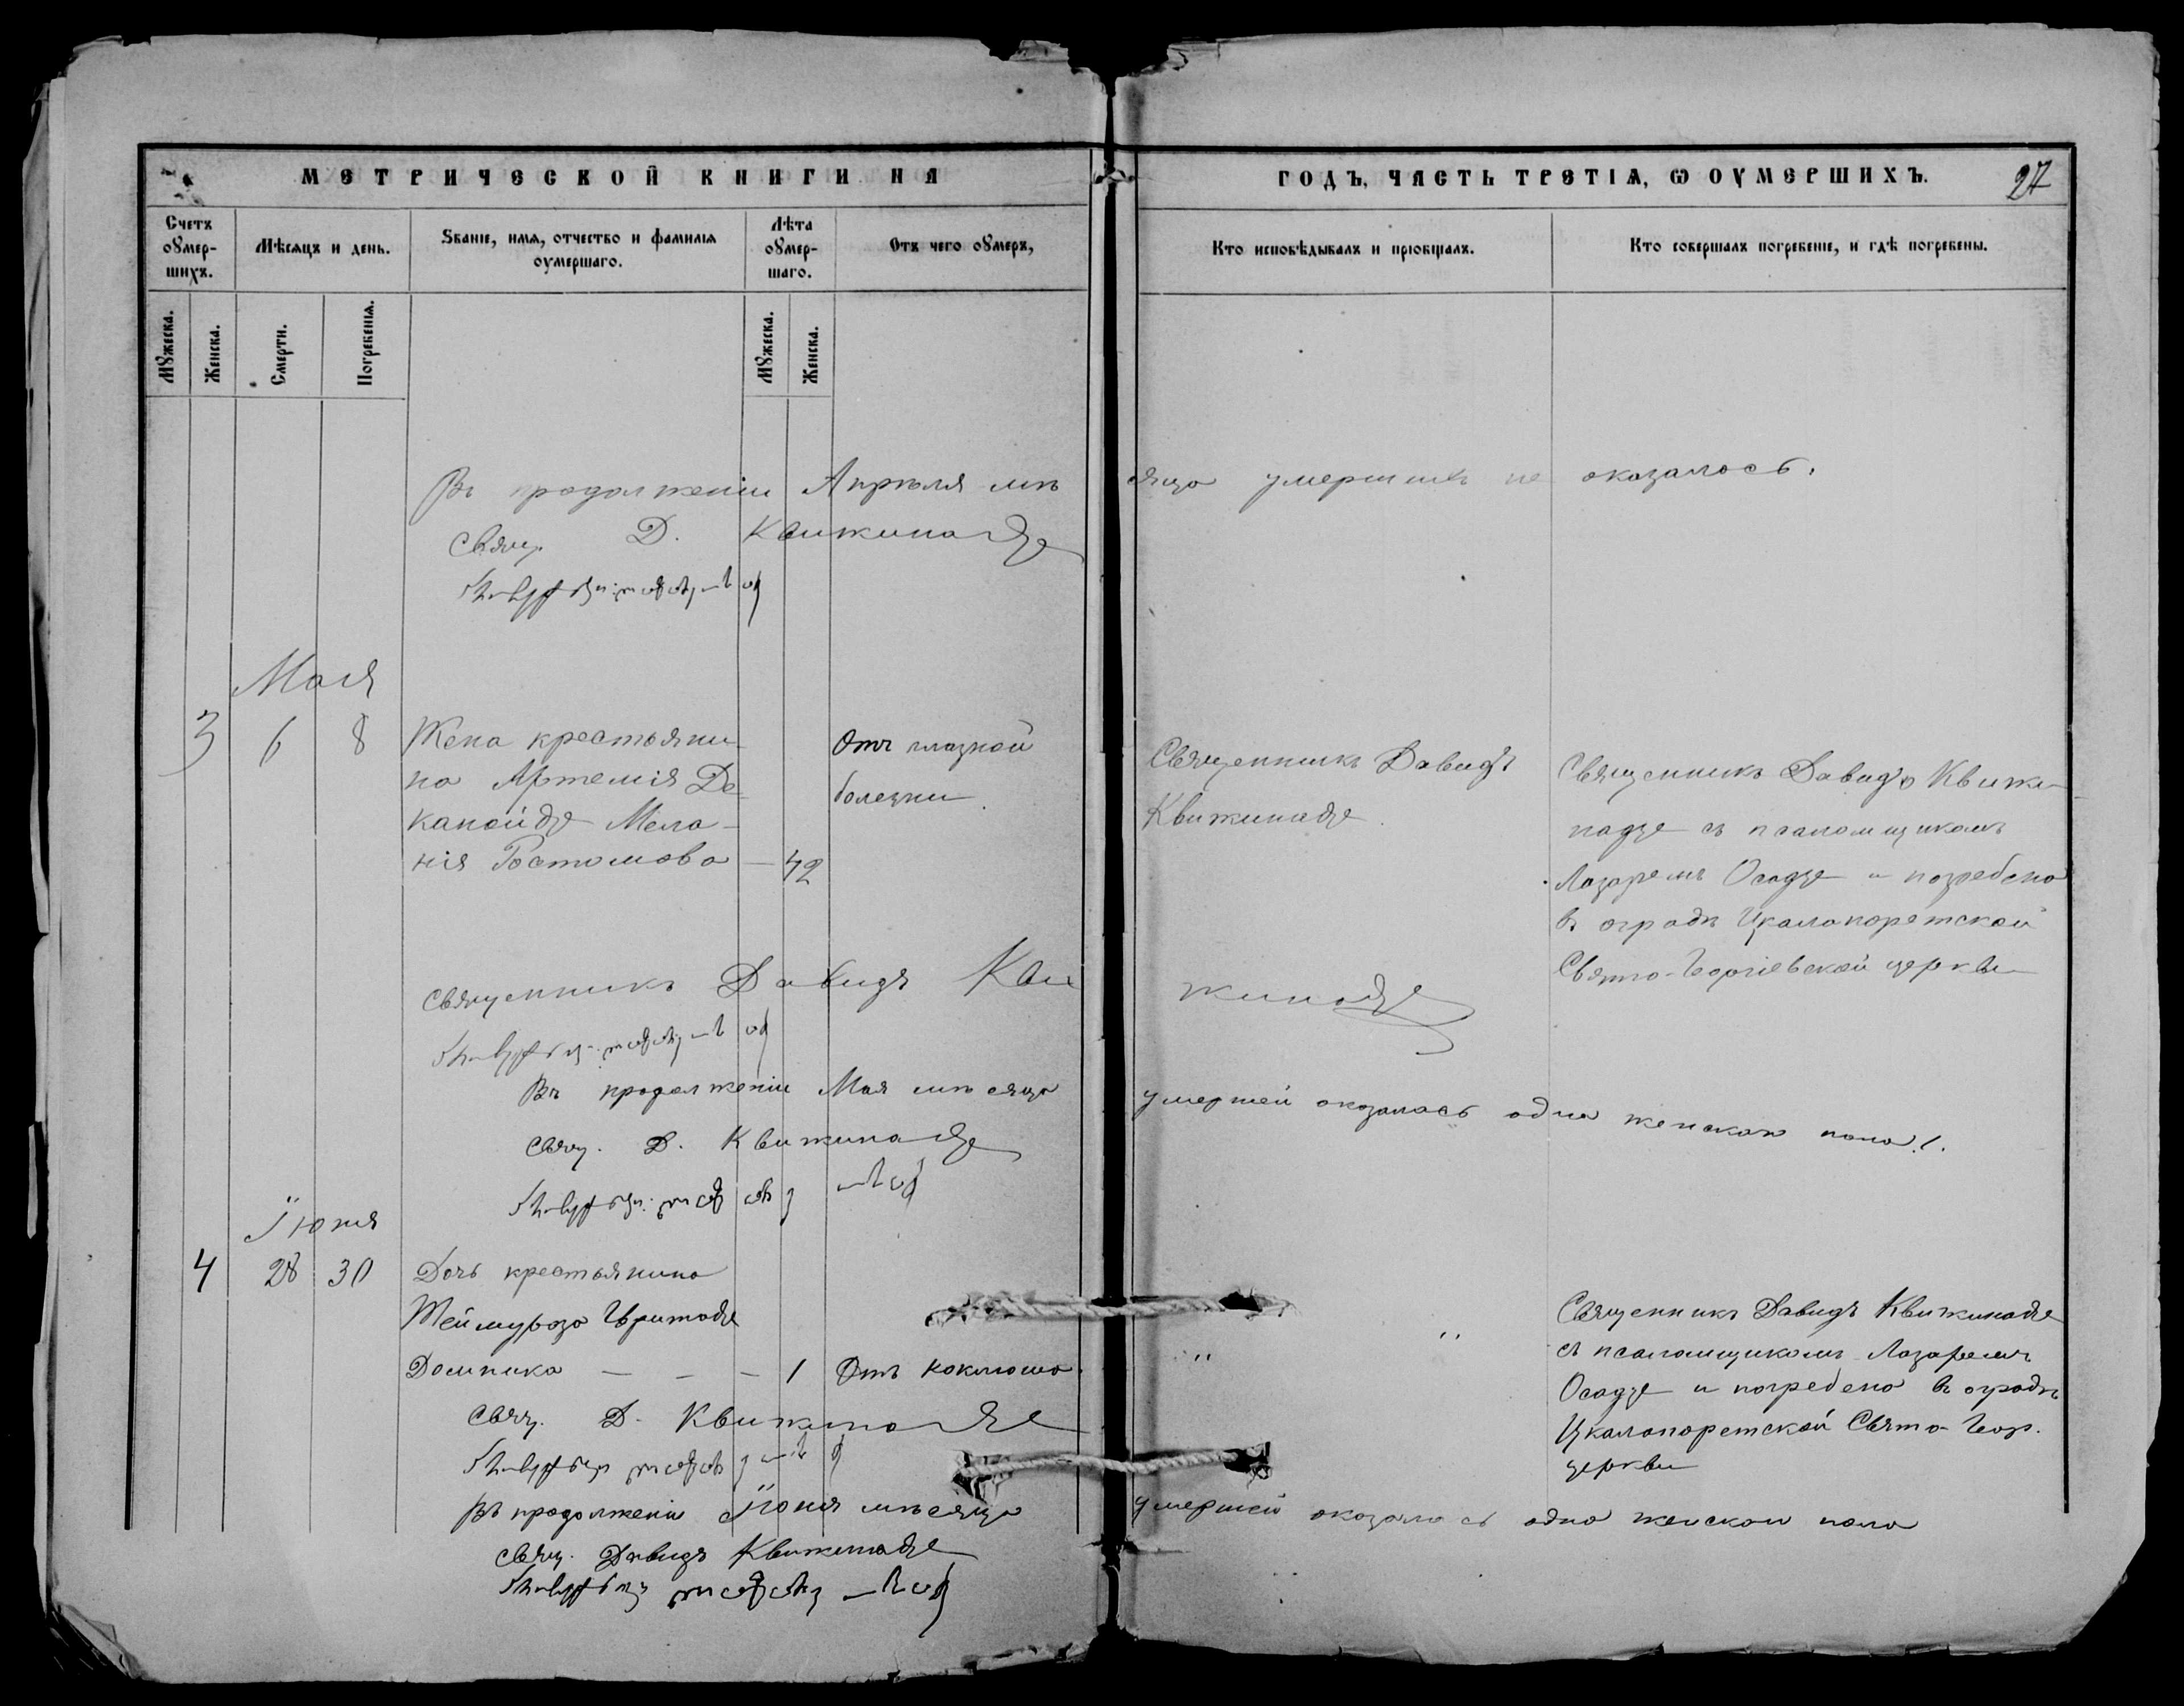 МЕТРИЧЕСКОЙ КНИГИ НА
ГОДЪ, ЧАСТЬ ТРЕТІѦ, Ѡ ОУМЕРШИХЪ.
27
Счетъ оумер-
шихъ.
Мѣсѧцъ и день.
Званіе, имѧ, отчество и фамиліѧ
оумершаго.
Лѣта
оумер-
шаго.
Отъ чего оумеръ,
Кто исповѣдывалъ и пріобщалъ.
Кто совершалъ погребеніе, и гдѣ погребены.
Мужеска.
Женска.
Смерти.
Погребеніѧ.
Мужеска.
Женска.
Въ продолженіи Апрѣля мѣсяца умершихъ не оказалось.
Свящ. Д. Квижинадзе
Мая
3 6 8
Жена крестьяни-
на Артемія Де-
каноидзе Мела-
нія Ростомова — 42
Отъ глазной
болезни.
Священникъ Давидъ
Квижинадзе.
Священникъ Давидъ Квижи-
надзе съ псаломщикомъ
Лазаремъ Осадзе и погребена
въ оградѣ Цкалапоретской
Свято-Георгіевской церкви
Священникъ Давидъ Квижинадзе
Въ продолженіи Мая мѣсяца умершей оказалась одна женскаго пола 1.
Свящ. Д. Квижинадзе
Іюня
4 28 30
Дочь крестьянина
Теймураза Гвритадзе
Домника — — — 1 Отъ коклюша.
" "
Священникъ Давидъ Квижинадзе
съ псаломщикомъ Лазаремъ
Осадзе и погребена въ оградѣ
Цкалапоретской Свято-Геор.
церкви
Свящ. Д. Квижинадзе
Въ продолженіи Іюня мѣсяца умершей оказалась одна женскаго пола
Свящ. Давидъ Квижинадзе